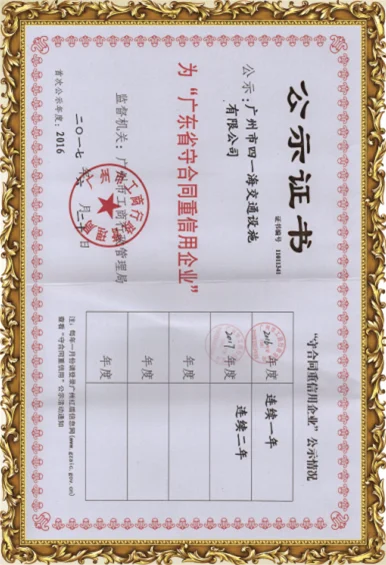 公示证书
证书编号
公示:广州市四一海交通设施
有限公司
为“广东省守合同重信用企业”
监督机关:广州市工商行政管理局
二〇一七年六月二十日
首次公示年度:2016
“守合同重信用企业”公示情况
2016年度 连续一年
2017年度 连续二年
年度
年度
年度
注:每年一月份请登录广州红盾信息网(www.gzaic.gov.cn)
查看“守合同重信用”公示活动通知